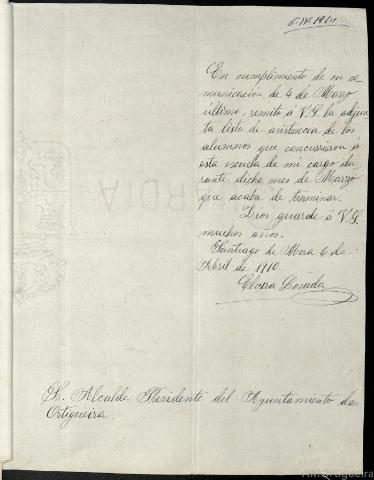 6-IV-1910
En cumplimiento de su co
municación de 4 de Marzo
último, remito á V.S. la adjun
ta lista de asistencia de los
alumnos que concurrieron á
esta escuela de mi cargo du
rante dicho mes de Marzo
que acaba de terminar.
Dios guarde á V.S.
muchos años.
Santiago de Mera 6 de
Abril de 1910.
Elvira Losada
Sr. Alcalde Presidente del Ayuntamiento de
Ortigueira.